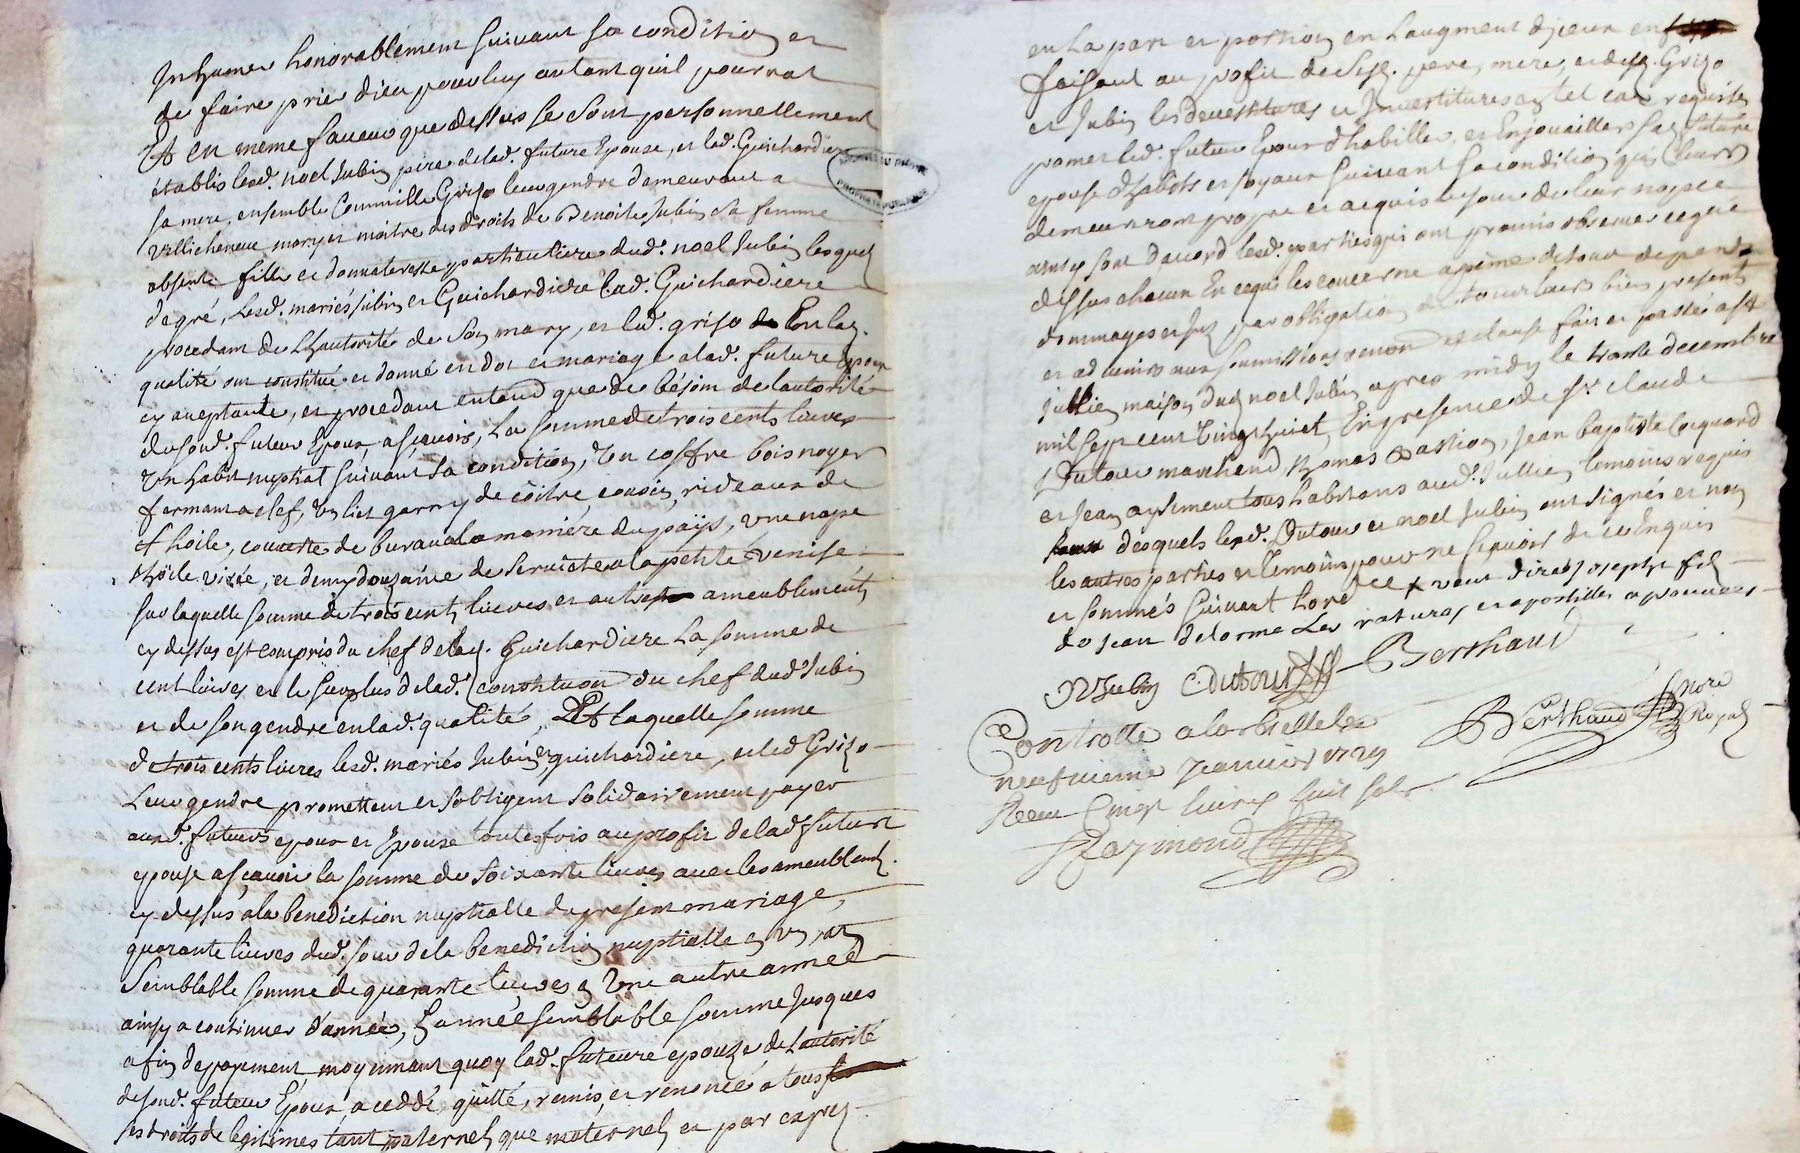 Inhumer honorablement suivant sa condition et
de faire prier dieu pour luy autant quil pourrat
Et en meme faveur que dessus se sont personnellement
établis lesd. noel Jubin pere de lad. future Epouze, et lad. Guichardiere
sa mere, ensemble Grizo leur gendre demeurant a
villicheneve mary et maitre des droits de Benoite Jubin sa femme
absente fille et donnateresse particuliere dud. noel Jubin lesquels
de gré, Lesd. mariés Jubin et Guichardiere lad. Guichardiere
procedant de Lhautorité de son mary, et led. grizo En lad.
qualité ont constitué et donné en dot et mariage a lad. future Epouze
cy aceptante, et procedant entand que de bésoin de lautorité
dusond. futeur Epoux, a sçavoir, La somme de trois cents livres
Un habit nuptial suivant sa condition, Un coffre bois noyer
fermant a clef, Un lict garny de coitre, cousin, rideaux de
thoile, couverte de bureau a la maniére du païs, une nape
thoile, et demy douzaine de serviete a la petite venise
sur laquelle somme de trois cent livres et autres ameublements
cy dessus est compris du chef de lad. Guichardiere La somme de
cent livres et le surplus de lad. constitution du chef dud. Jubin
et de son gendre en lad. qualité, laquelle somme
de trois cents livres lesd. mariés Jubin et guichardiere, et led Grizo
Leur gendre promettent et sobligent solidairement payer
aux d. futeurs epoux et Epouze toutesfois au profit de lad future
epouse a sçavoir la somme de soixante livres avec les ameublemts.
cy dessus a la benediction nuptialle du present mariage,
quarante livres dud. jour de la benediction nuptialle en un an
Semblable somme de quarante livres en Une autre année
ainsy a continuer d'année, En année semblable somme Jusques
a fin de payement moyennant quoy lad. futeure epouze de Lautorité
desond. futeur Epoux a ceddé, quitté, remis, et renoncé a tous
ses droits de legitimes tant paternels que maternels et par exprés
en La part et portion en Laugment diceux en
faisant au profit de sesd. pere, mere, et desd. Grizo
et Jubin les devestitures et Investitures en tel cas requises
promet led. futeur Epoux d'habiller, et Enjoualler sad. future
epouse d'habits et joyaux suivant sa condition qui Leurs
demeureront propre et acquis le jour de leur nopce
ainsy sont d'acord lesd. parties qui ont promis observer ce que
dessus chacun En ce qui les concerne a peine de tous depens
dommages et par obligation de tous leurs bien present
et ad venir aux soumissions renon et clause fait et passé aud.
Jullie maison dud noel Jubin apres midy le trante decembre
mil sept cent Vingt huict, En presence de Sr. claude
Dutour marchand, thomas Bastion, Jean baptiste Coquard
et Jean aysiment tous habitans aud. Jullie, temoins requis
desquels lesd. Dutour et noel Jubin ont signés et non
les autres parties et temoins pour ne sçavoir de ce Enquis
et sommés suivant Lordce x veut dire Joseph fils
do Jean delorme Les ratures et apostilles aprouvees
N Jubin Dutour Berthaud
Controllé a
neufvieme Janvier 1729
Berthaud Nore Royal
Receu livres huit sols
Raymond
ARCHIVES DU RHONE
PROPRIETE PUBLIQUE